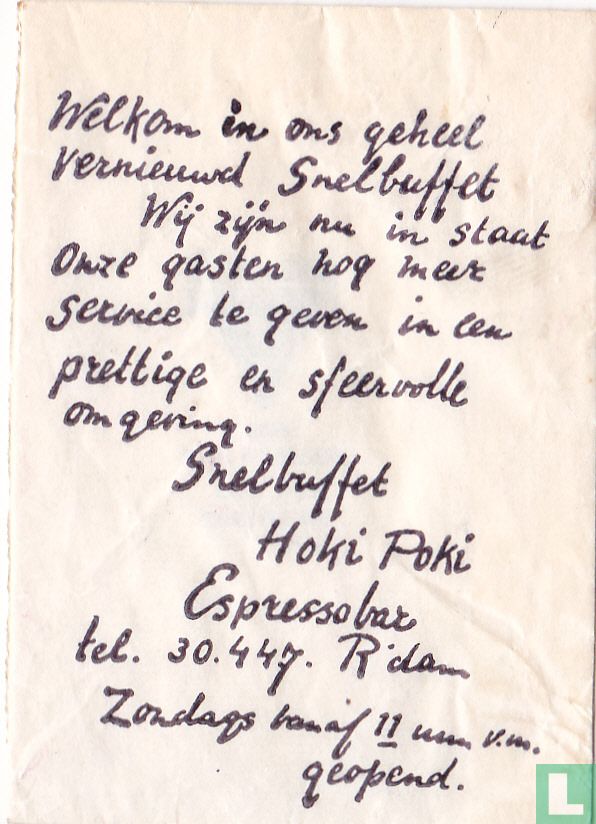 Welkom in ons geheel
Vernieuwd Snelbuffet
Wij zijn nu in staat
Onze gasten nog meer
Service te geven in een
prettige en sfeervolle
omgeving.
Snelbuffet
Hoki Poki
Espressobar
tel. 30.447. R'dam
Zondags vanaf 11 uur v.m.
geopend.
L